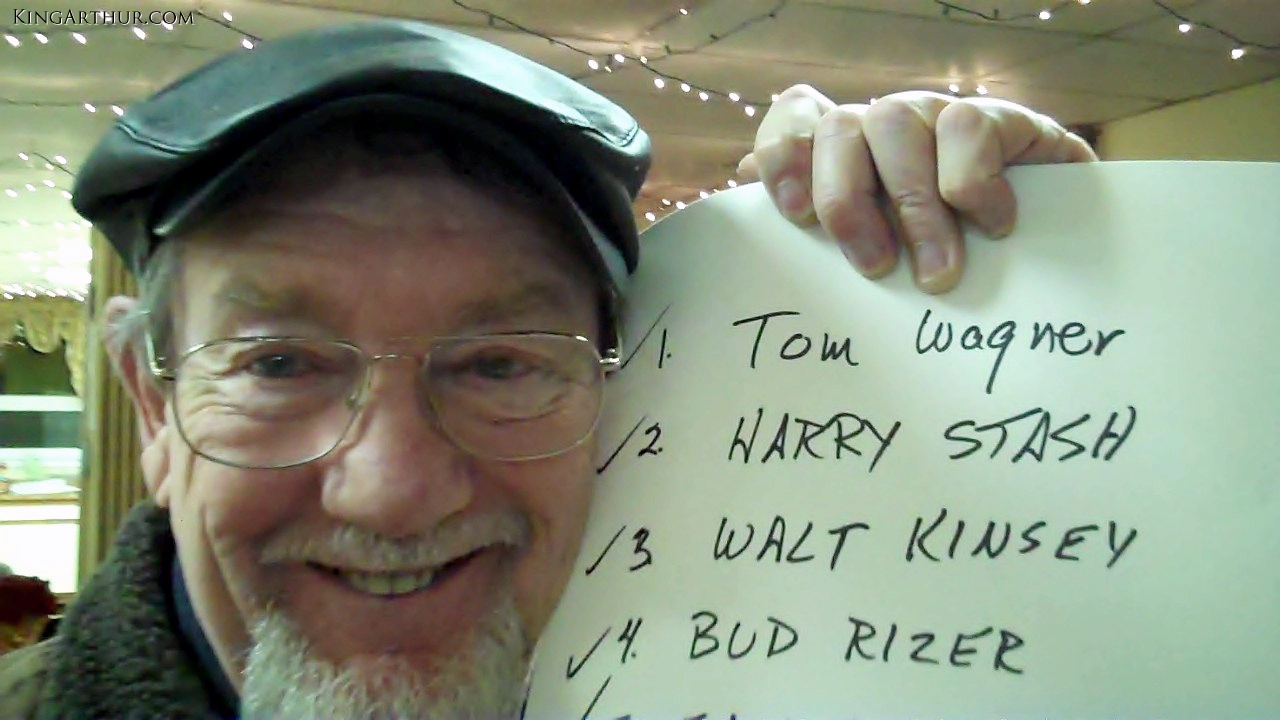 KingArthur.com
✓1. Tom Wagner
✓2. HARRY STASH
✓3 WALT KINSEY
✓4. BUD RIZER